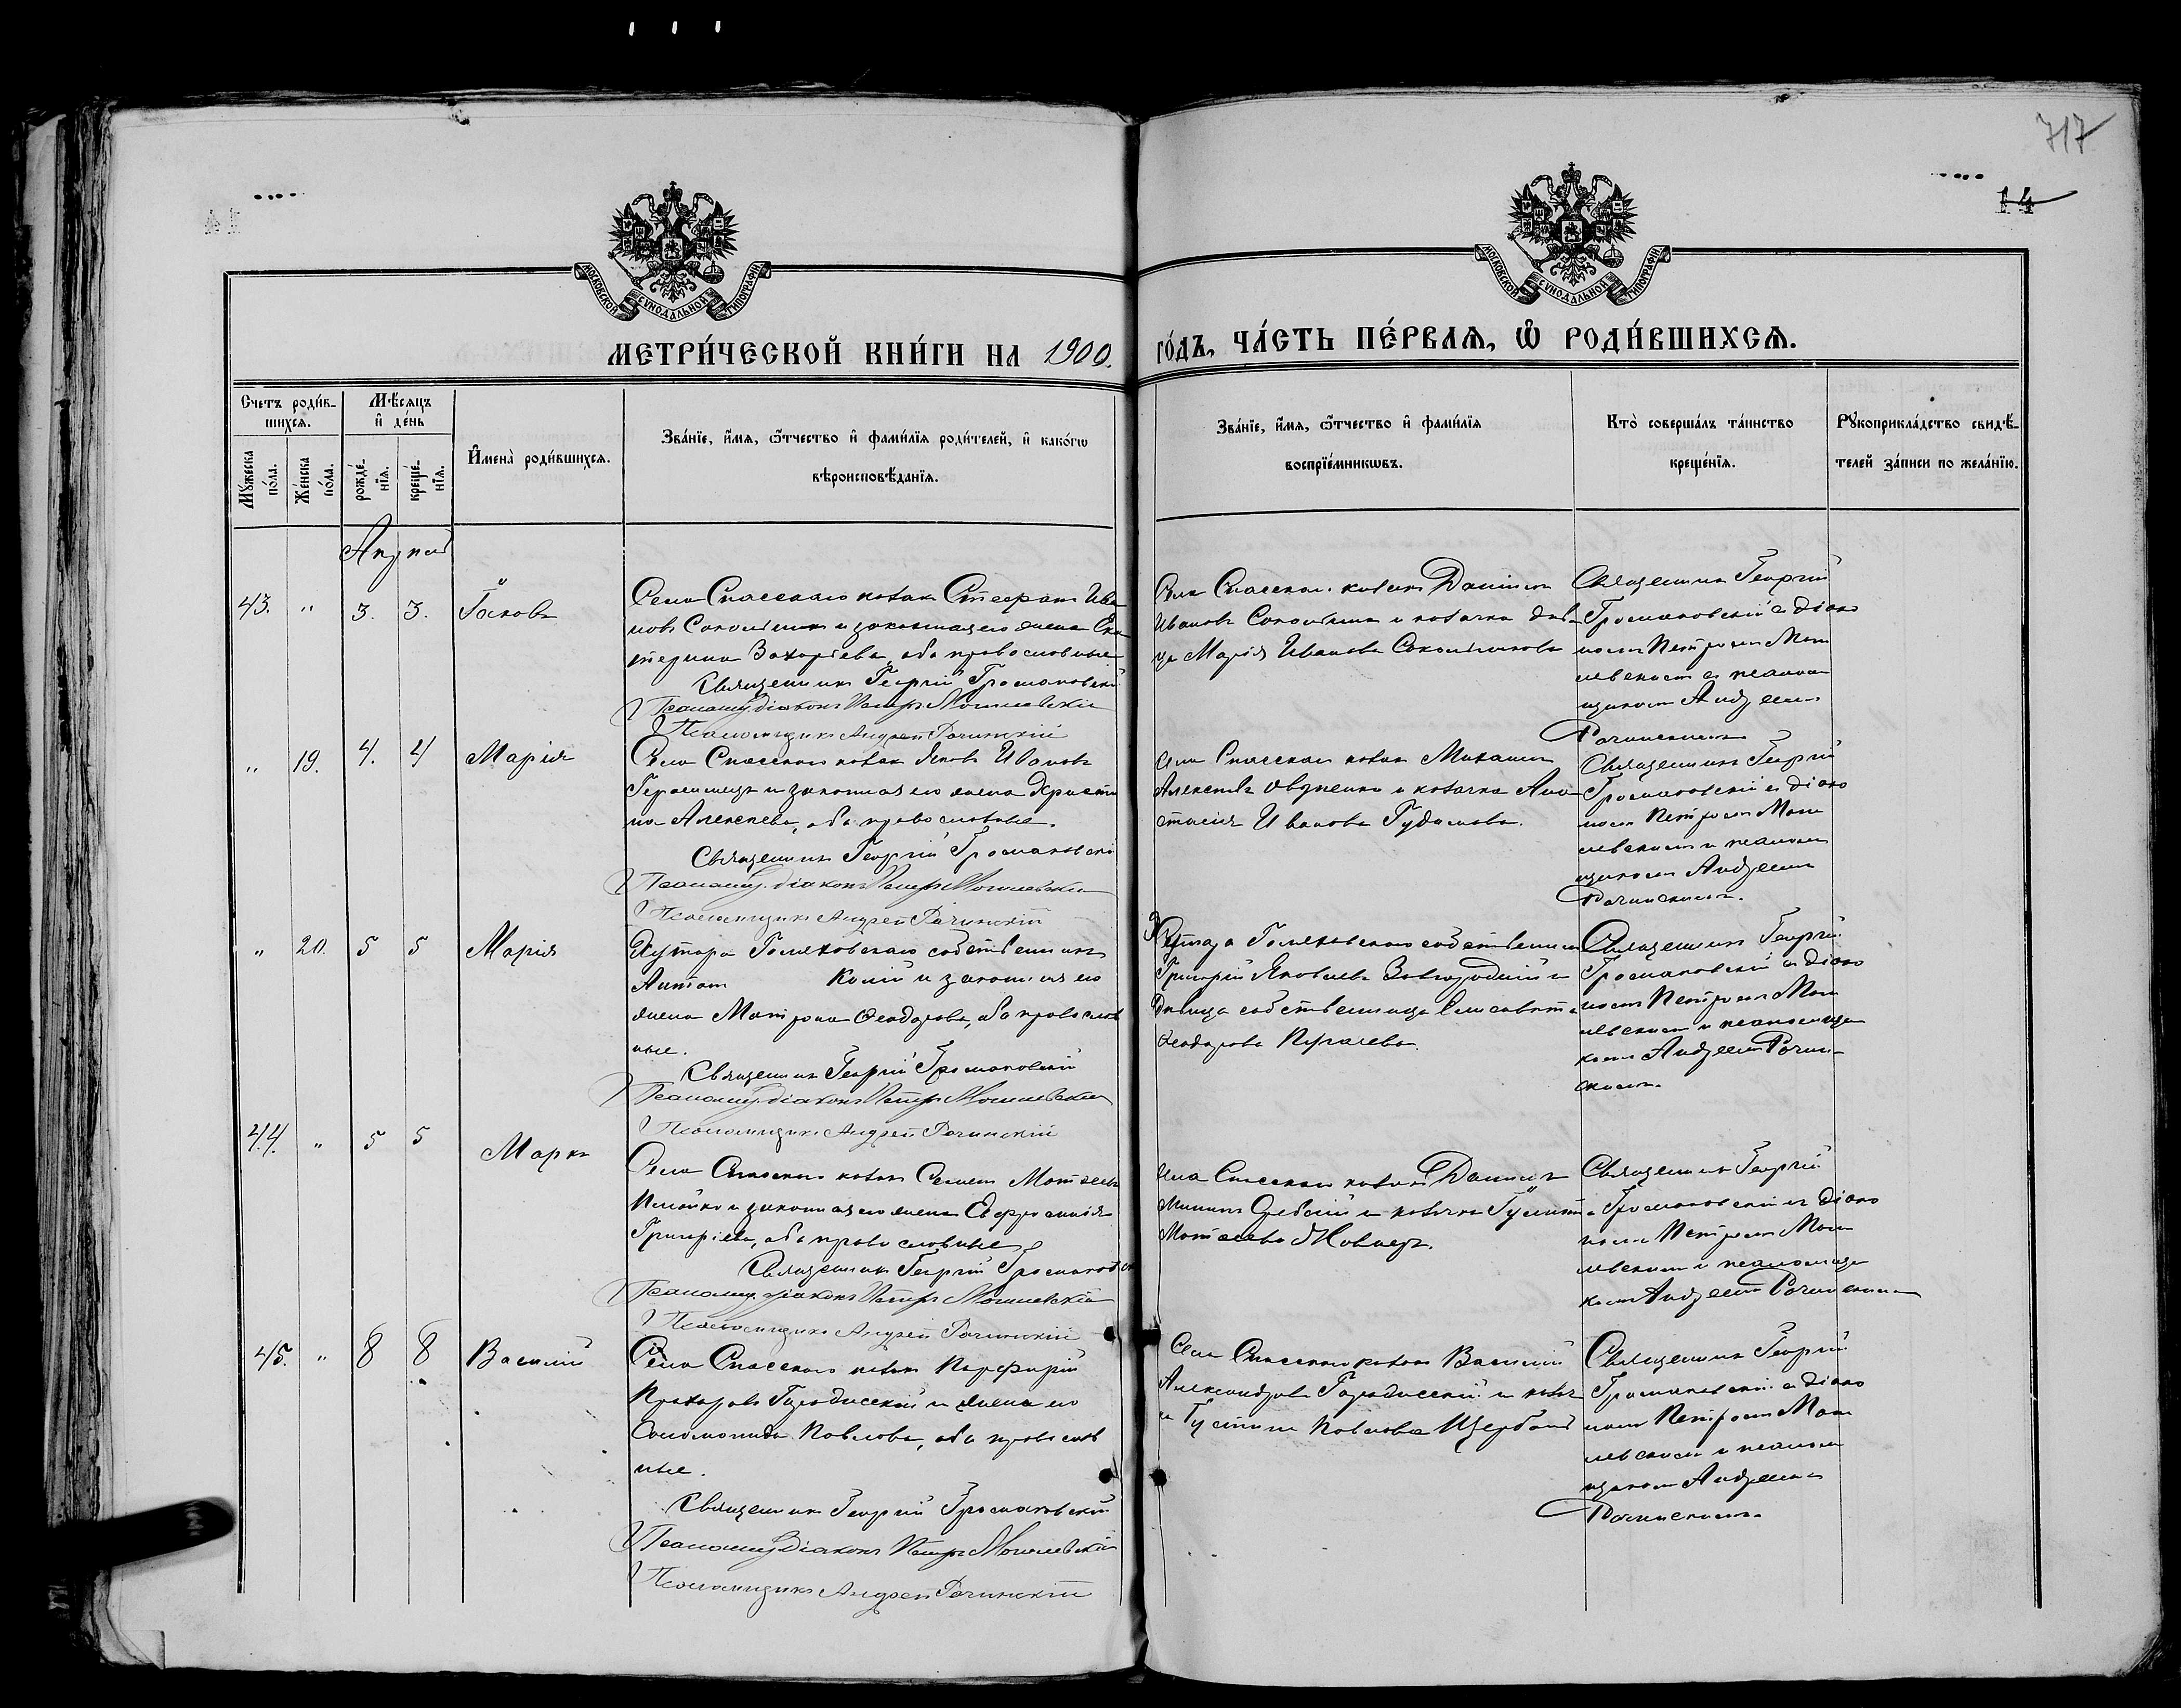 717
14
МОСКОВСКОЙ СѴНОДАЛЬНОЙ ТИПОГРАФІИ.
МОСКОВСКОЙ СѴНОДАЛЬНОЙ ТИПОГРАФІИ.
МЕТРИ́ЧЕСКОЙ КНИ́ГИ НА 1900.
ГО́ДЪ, ЧА́СТЬ ПЕ́РВАѦ, Ѡ РОДИ́ВШИХСѦ.
Счетъ роди́в-
шихсѧ.
Мѣ́сѧцъ
и҆ де́нь
Мꙋ́жеска
по́ла.
Же́нска
по́ла.
рожде́-
нїѧ.
креще́-
нїѧ.
И҆мена̀ роди́вшихсѧ.
Зва́нїе, и҆́мѧ, ѻ҆́тчество и҆ фами́лїѧ роди́телей, и҆ како́гѡ
вѣроисповѣ́данїѧ.
Зва́нїе, и҆́мѧ, ѻ҆́тчество и҆ фами́лїѧ
воспрїе́мникѡвъ.
Кто̀ соверша́лъ та́инство
креще́нїѧ.
Рꙋкоприкла́дство свидѣ́-
телей за́писи по жела́нїю.
Апрѣль
43. " 3. 3. Іаковъ
Села Спасскаго козакъ Стефанъ Ива
новъ Сокольникъ и законная его жена Ека
терина Захаріева, оба православные
Священникъ Георгій Громаковскій
Псаломщ. діаконъ Петръ Могилевскій
Псаломщикъ Андрей Рачинскій
Села Спасскаго козакъ Даніилъ
Ивановъ и козачка дѣви
ца Марія Иванова Сокольникова
Священникъ Георгій
Громаковскій съ діако
номъ Петромъ Моги
левскимъ и псалом
щикомъ Андреемъ
Рачинскимъ.
" 19. 4. 4 Марія
Села Спасскаго козакъ Яковъ Ивановъ
Герасимецъ и законная его жена Христи
на Алексѣева, оба православные.
Священникъ Георгій Громаковскій
Псаломщ. діаконъ Петръ Могилевскій
Псаломщикъ Андрей Рачинскій
Села Спасскаго козакъ Михаилъ
Алексѣевъ и козачка Ана
стасія Иванова Гудимова.
Священникъ Георгій
Громаковскій съ діако
номъ Петромъ Моги
левскимъ и псалом
щикомъ Андреемъ
Рачинскимъ.
" 20. 5 5 Марія
Хутора собственникъ
Антонъ и законная его
жена Матрона Ѳеодорова, оба православ
ные.
Священникъ Георгій Громаковскій
Псаломщ. діаконъ Петръ Могилевскій
Псаломщикъ Андрей Рачинскій
Хутора собственникъ
Григорій Яковлевъ и
дѣвица собственница Елисавета
Ѳеодорова
Священникъ Георгій
Громаковскій съ діако
номъ Петромъ Моги
левскимъ и псаломщи
комъ Андреемъ Рачин-
скимъ.
44. " 5 5 Маркъ
Села Спасскаго козакъ Матѳеевъ
и законная его жена Евфросинія
Григоріева, оба православные
Священникъ Георгій Громаковскій
Псаломщ. діаконъ Петръ Могилевскій
Псаломщикъ Андрей Рачинскій
Села Спасскаго козакъ Даніилъ
и козачка
Матѳеева
Священникъ Георгій
Громаковскій съ діако
номъ Петромъ Моги
левскимъ и псаломщи
комъ Андреемъ Рачинскимъ
45. " 8 8 Василій
Села Спасскаго козакъ Порфирій
Прохоровъ и жена его
Соломонида Павлова, оба православ
ные.
Священникъ Георгій Громаковскій
Псаломщ. діаконъ Петръ Могилевскій
Псаломщикъ Андрей Рачинскій
Села Спасскаго козакъ Василій
Александровъ и козач
ка Павлова
Священникъ Георгій
Громаковскій съ діако
номъ Петромъ Моги
левскимъ и псалом
щикомъ Андреемъ
Рачинскимъ.